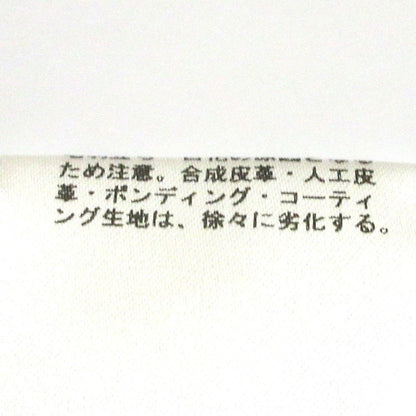 ため注意。合成皮革・人工皮
革・ボンディング・コーティ
ング生地は、徐々に劣化する。